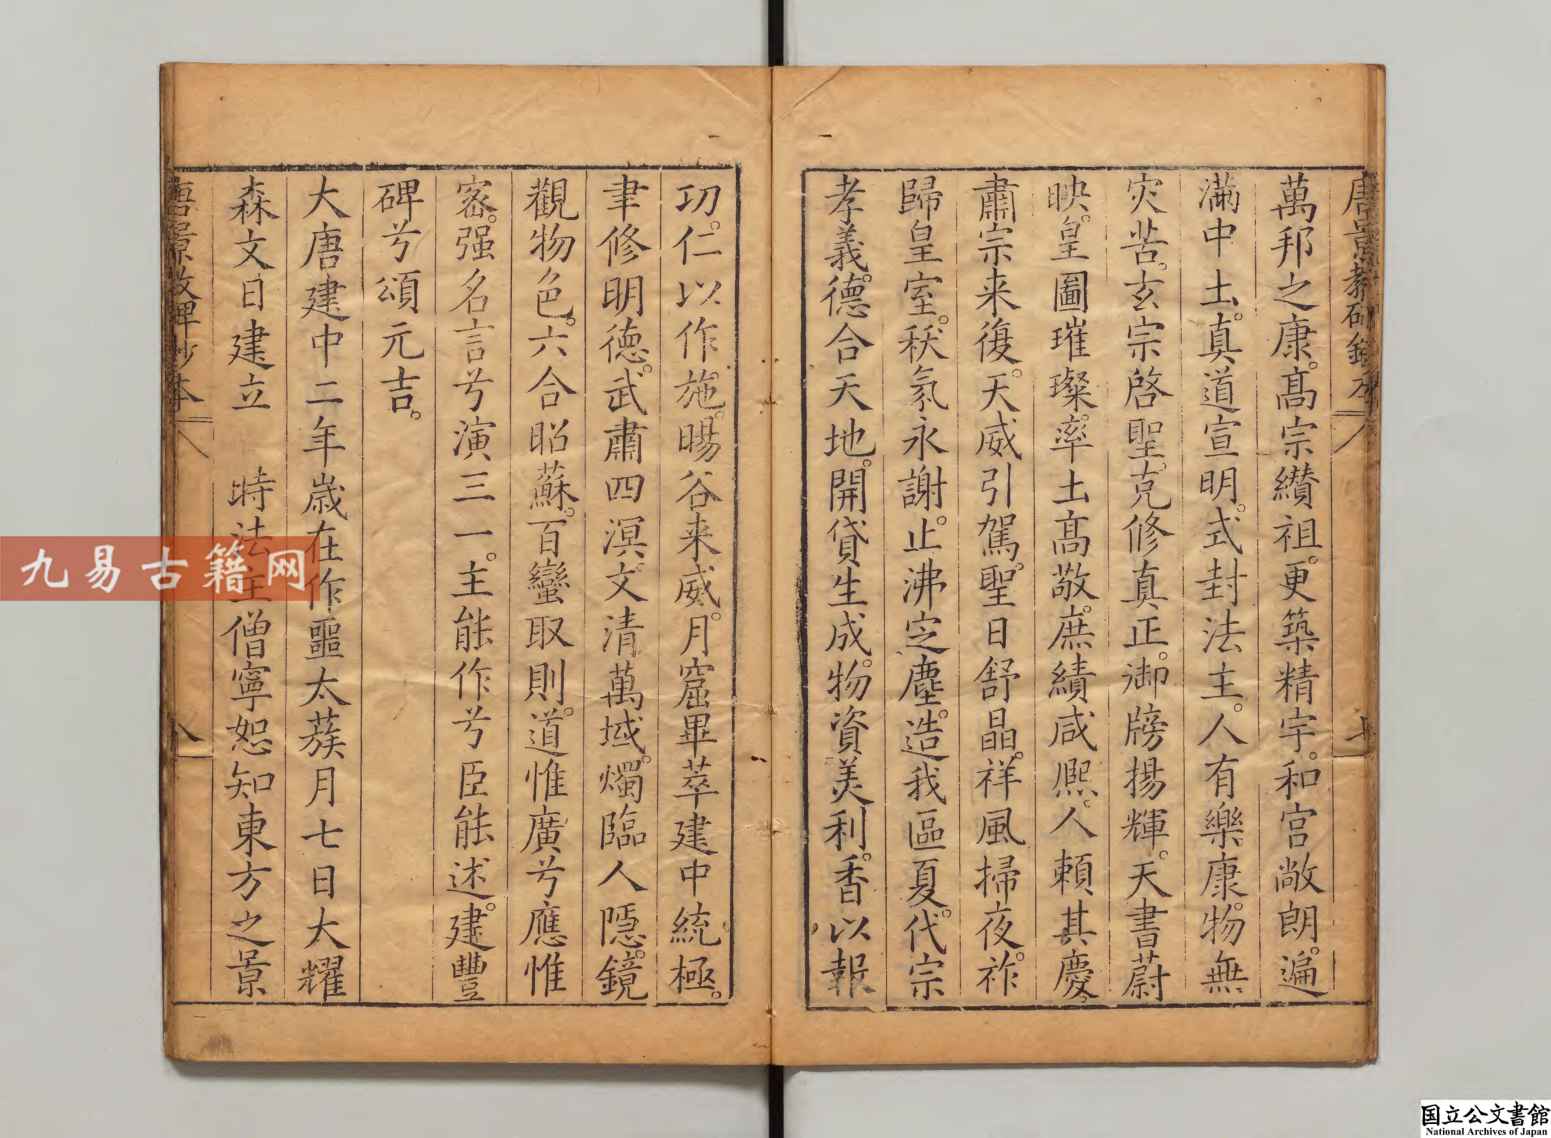 萬邦之康。高宗纘祖。更築精宇。和宮敞朗。遍
滿中土。真道宣明。式封法主。人有樂康。物無
灾苦。玄宗啓聖。克修真正。御牓揚輝。天書蔚
映。皇圖璀璨。率土高敬。庶績咸熈。人賴其慶。
肅宗来復。天威引駕。聖日舒晶。祥風掃夜。祚
歸皇室。祅氛永謝。止沸定塵。造我區夏。代宗
孝義。德合天地。開貸生成。物資美利。香以報
功。仁以作施。暘谷来威。月窟畢萃。建中統極。
聿修明德。武肅四溟。文清萬域。燭臨人隱。鏡
觀物色。六合昭蘇。百蠻取則。道惟廣兮應惟
密。强名言兮演三一。主能作兮臣能述。建豐
碑兮頌元吉。
大唐建中二年歲在作噩太蔟月七日大耀
森文日建立 時法主僧寧恕知東方之景
八
九易古籍网
国立公文書館
National Archives of Japan